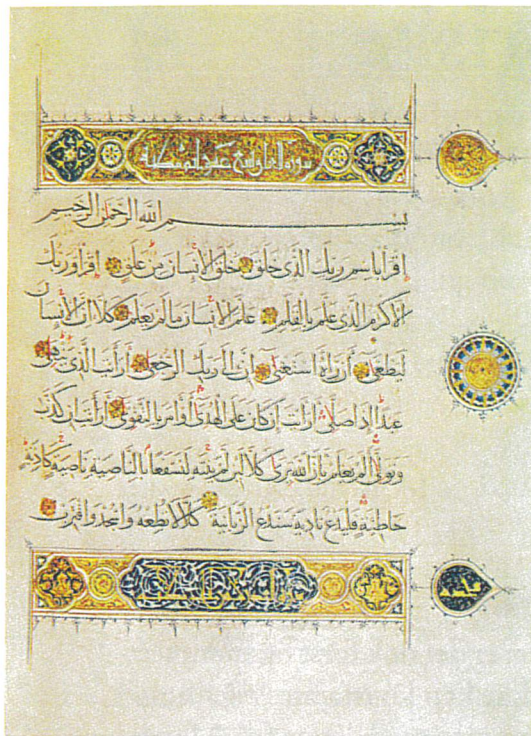 سورة اقرا تسع عشرة مكية
بسم الله الرحمن الرحيم
اقرا باسم ربك الذي خلق خلق الانسان من علق اقرا وربك
الاكرم الذي علم بالقلم علم الانسان ما لم يعلم كلا ان الانسان
ليطغى ان راه استغنى ان الى ربك الرجعى ارايت الذي ينهى
عبدا اذا صلى ارايت ان كان على الهدى او امر بالتقوى ارايت ان كذب
وتولى الم يعلم بان الله يرى كلا لئن لم ينته لنسفعا بالناصية ناصية كاذبة
خاطئة فليدع ناديه سندع الزبانية كلا لا تطعه واسجد واقترب